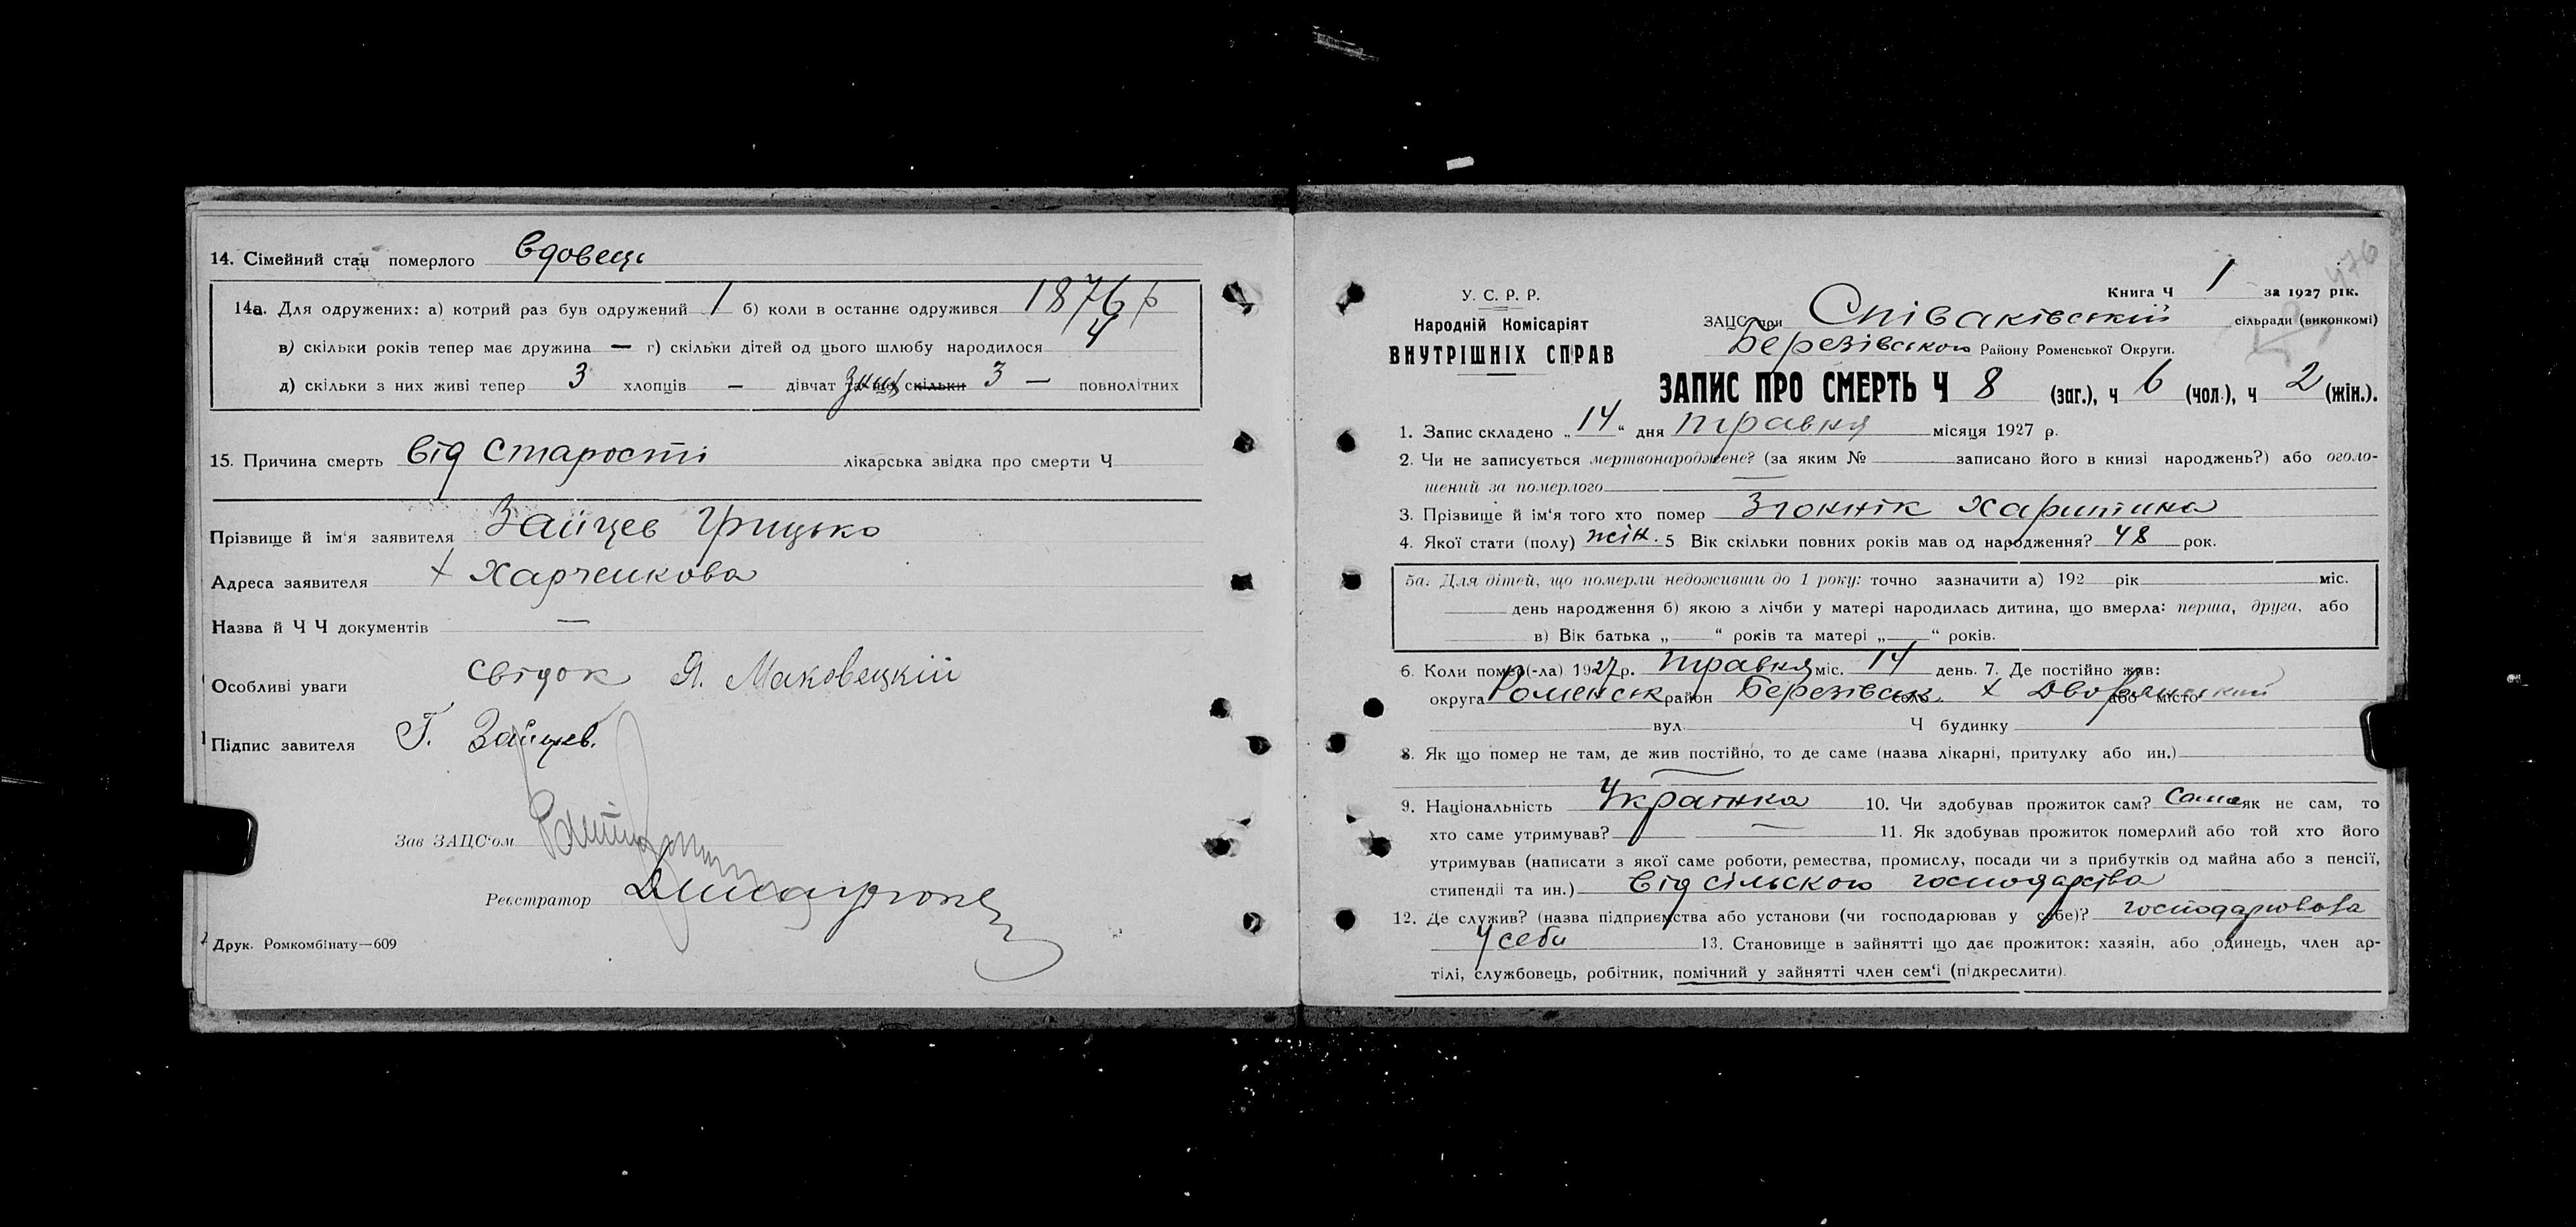 14. Сімейний стан померлого вдовець
14а. Для одружених: а) котрий раз був одружений 1 б) коли в останнє одружився 1876 р
в) скільки років тепер має дружина — г) скільки дітей од цього шлюбу народилося 4
д) скільки з них живі тепер 3 хлопців — дівчат з них скільки 3 — повнолітних
15. Причина смерть від старости лікарська звідка про смерти Ч
Прізвище й ім'я заявителя Зайцев Грицько
Адреса заявителя х Харченкова
Назва й Ч Ч документів —
Особливі уваги свідок Я. Маковецкій
Підпис завителя Г. Зайцев.
Зав ЗАЦС'ом
Реєстратор
Друк. Ромкомбінату—609
476
Книга Ч 1 за 1927 рік.
У. С. Р. Р.
Народній Комісаріят
ВНУТРІШНІХ СПРАВ
ЗАЦС при Співаківській сільради (виконкомі)
Березівського Району Роменської Округи.
ЗАПИС ПРО СМЕРТЬ Ч 8 (заг.), ч 6 (чол.), ч 2 (жін.).
1. Запис складено „14" дня травня місяця 1927 р.
2. Чи не записується мертвонароджене? (за яким № записано його в книзі народжень?) або оголо-
шений за померлого —
3. Прізвище й ім'я того хто помер Харитина
4. Якої стати (полу) жін. 5 Вік скільки повних років мав од народження? 48 рок.
5а. Для дітей, що померли недоживши до 1 року: точно зазначити а) 192 рік міс.
день народження б) якою з лічби у матері народилась дитина, що вмерла: перша, друга, або
в) Вік батька „ " років та матері „ " років.
6. Коли помер(-ла) 1927 р. травня міс. 14 день. 7. Де постійно жив:
округа Роменськ район Березівськ село х Дворянский або місто
вул. Ч будинку
8. Як що помер не там, де жив постійно, то де саме (назва лікарні, притулку або ин.)
9. Національність Українка 10. Чи здобував прожиток сам? сама як не сам, то
хто саме утримував? — 11. Як здобував прожиток померлий або той хто його
утримував (написати з якої саме роботи, ремества, промислу, посади чи з прибутків од майна або з пенсії,
стипендії та ин.) Від сільского господарства
12. Де служив? (назва підприємства або установи (чи господарював у себе)? господарювала
У себи 13. Становище в зайнятті що дає прожиток: хазяін, або одинець, член ар-
тілі, службовець, робітник, помічний у зайнятті член сем'ї (підкреслити).